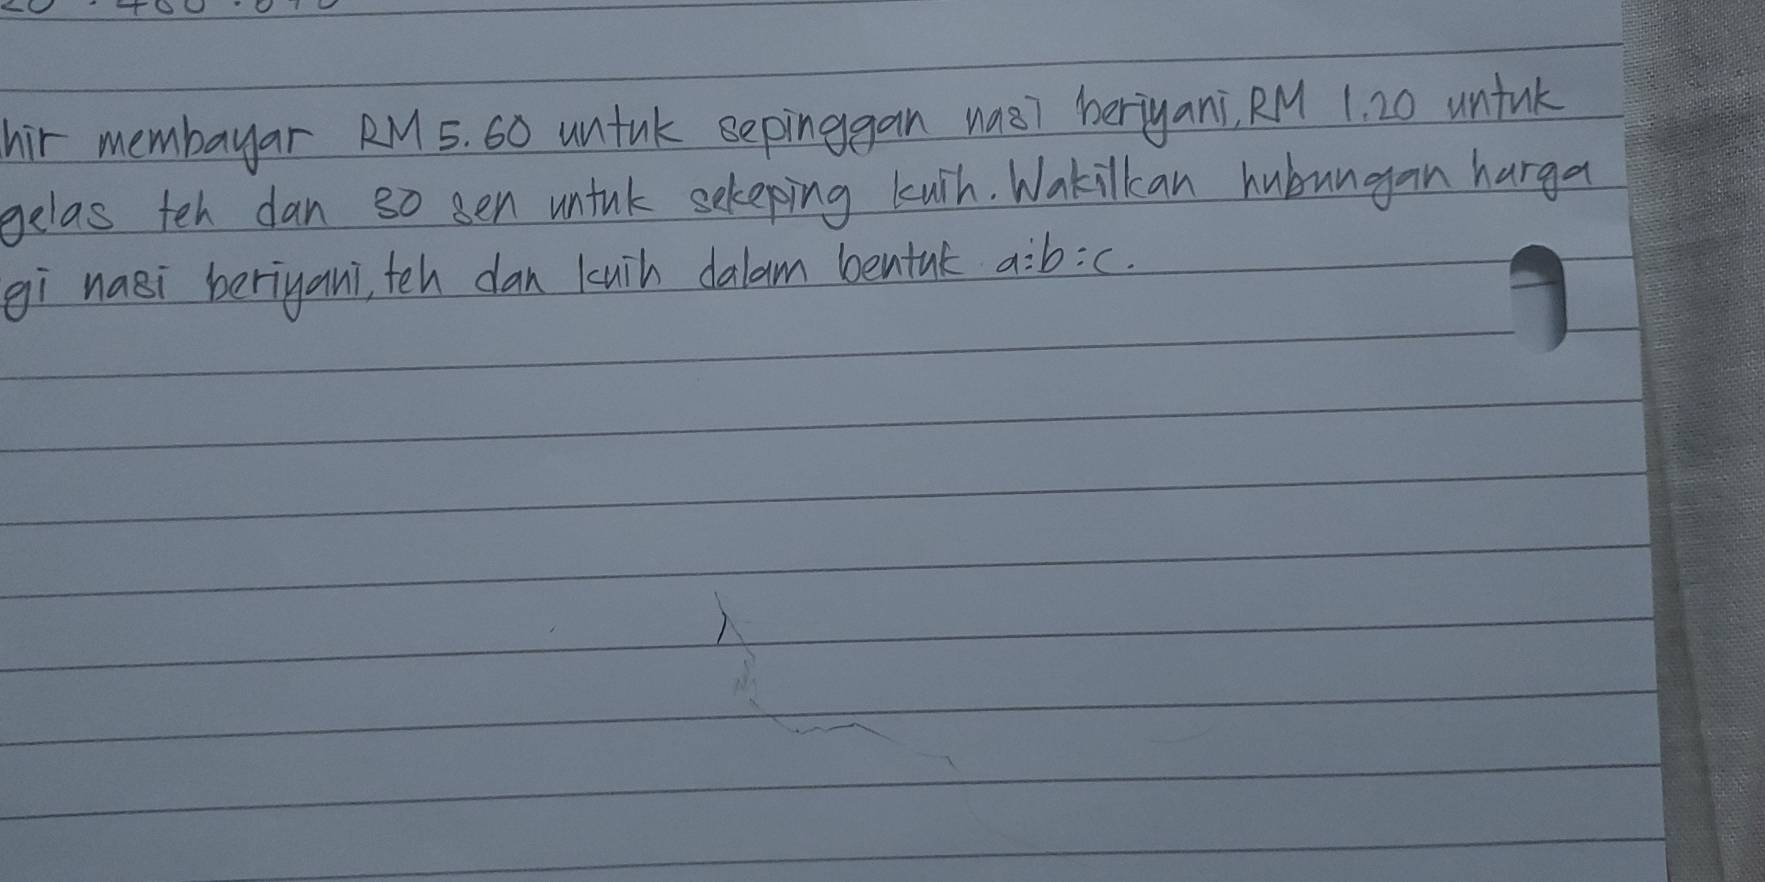 hir membayar RM 5.60 untuk sepinggan nasi beriyani, RM 1.20 untuk
gelas teh dan 30 sen untuk sekeping kuih. Wakilkan hubungan harga
gi nasi beriyani, teh dan kuih dalam bentuk a:b:c.